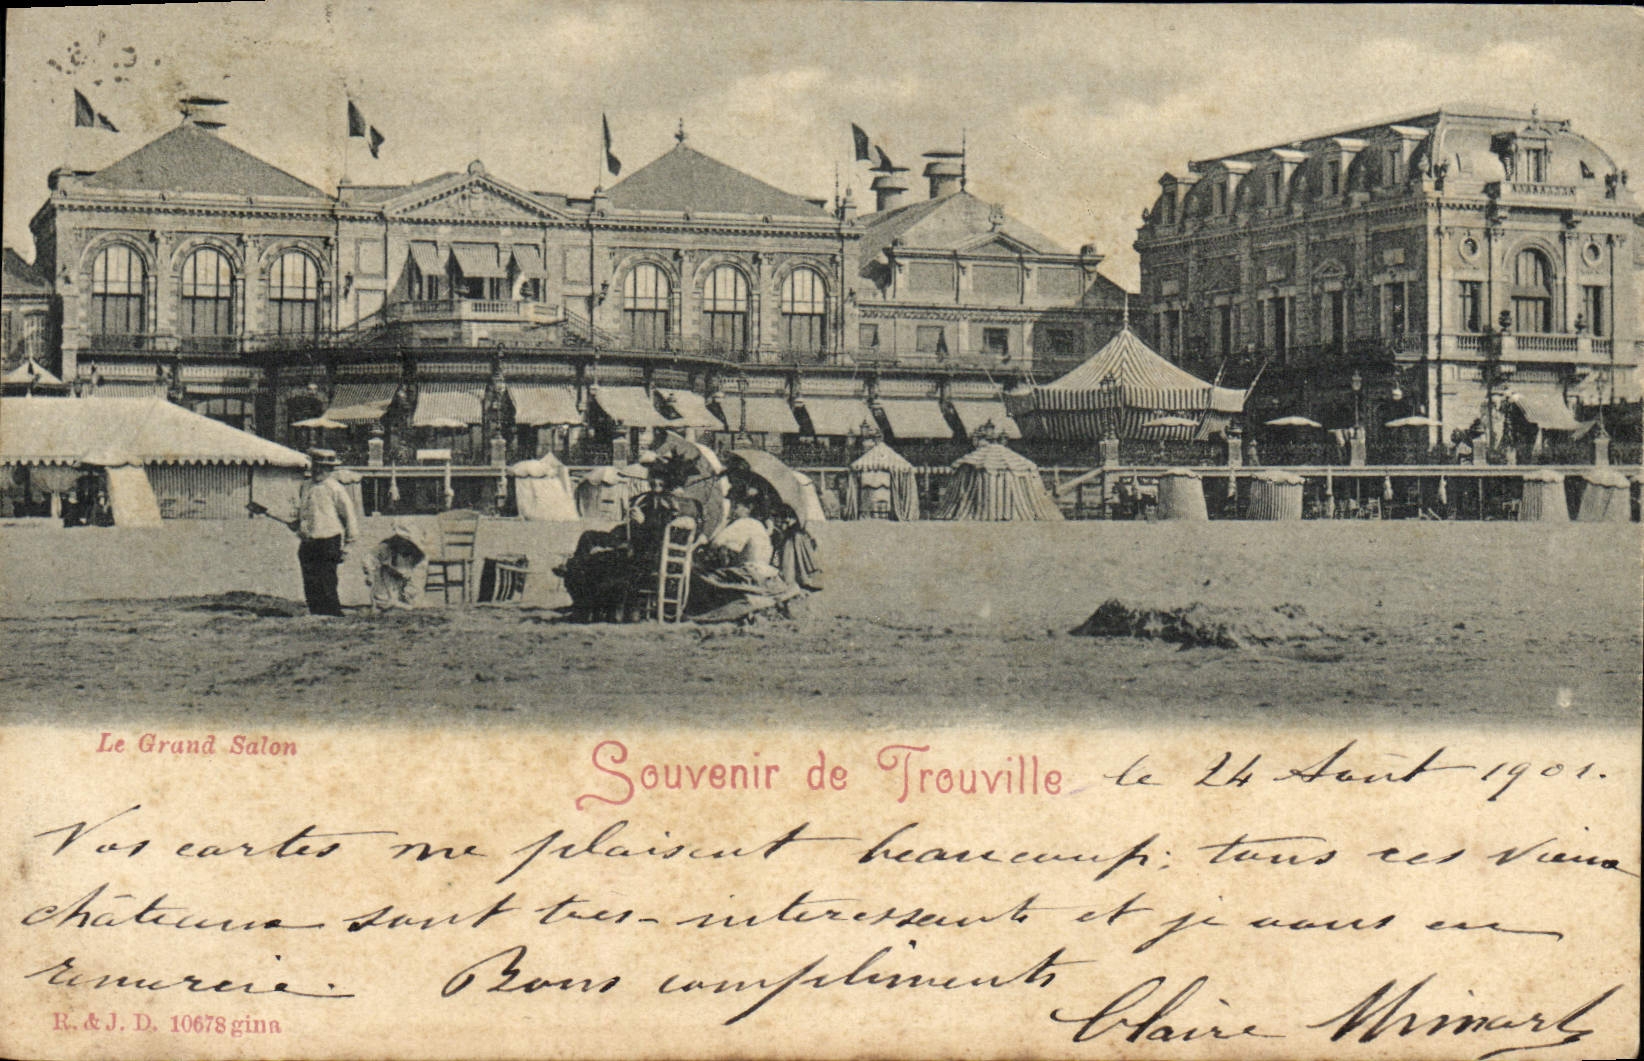 Le Grand Salon
Souvenir de Trouville le 24 Août 1901.
Vos cartes me plaisent beaucoup; tous ces vieux
châteaux sont très-intéressants et je vous en
remercie. Bons compliments
Claire
R. & J. D. 10678 gina